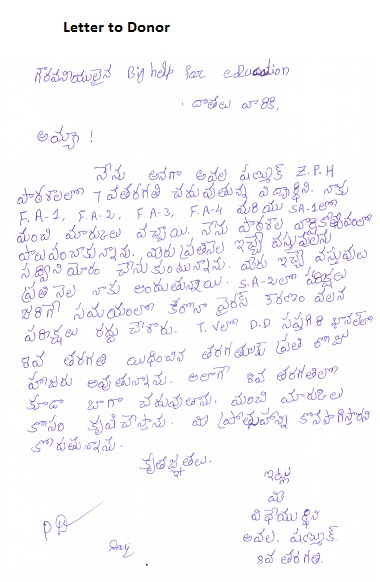 Letter to Donor
గౌరవనీయులైన Big help for education
దాతలు వారికి,
అయ్యా !
నేను అనగా అవల షణ్ముక్ Z.P.H
పాఠశాలలో 7 వతరగతి చదువుతున్న విద్యార్థిని. నాకు
F.A-1, F.A-2, F.A-3, F.A-4 మరియు SA-1లో
మంచి మార్కులు వచ్చాయి. నేను పాఠశాల
పాలుపంచుకున్నాను. మీరు ప్రతినెల ఇచ్చే వస్తువులను
సద్వినియోగం చేసుకుంటున్నాను. మీరు ఇచ్చే వస్తువులు
ప్రతి నెల నాకు అందుతున్నాయి. S.A-2లో పరీక్షలు
జరిగే సమయంలో కరోనా వైరస్ కారణం వలన
పరీక్షలు రద్దు చేశారు. T.Vలో D.D సప్తగిరి ఛానల్‌లో
8వ తరగతి యిధించిన తరగతులకు ప్రతి రోజు
హాజరు అవుతున్నాను. అలాగే 8వ తరగతిలో
కూడా బాగా చదువుతాను. మంచి మార్కులు
కోసం కృషి చేస్తాను. మీ ప్రోత్సాహాన్ని కొనసాగిస్తారని
కోరుతున్నాను.
కృతజ్ఞతలు.
ఇట్లు
మీ
విధేయుర్థిని
అవల. షణ్ముక్.
8వ తరగతి.